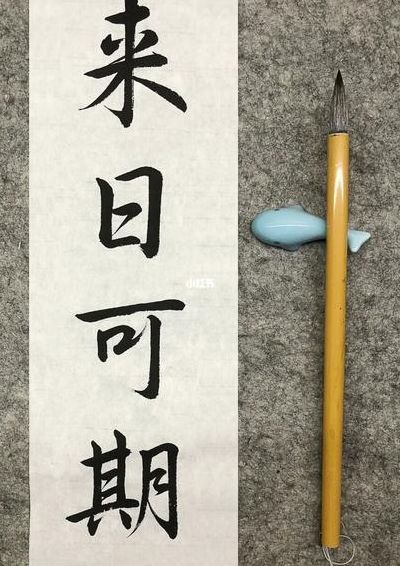 来日可期
小红书